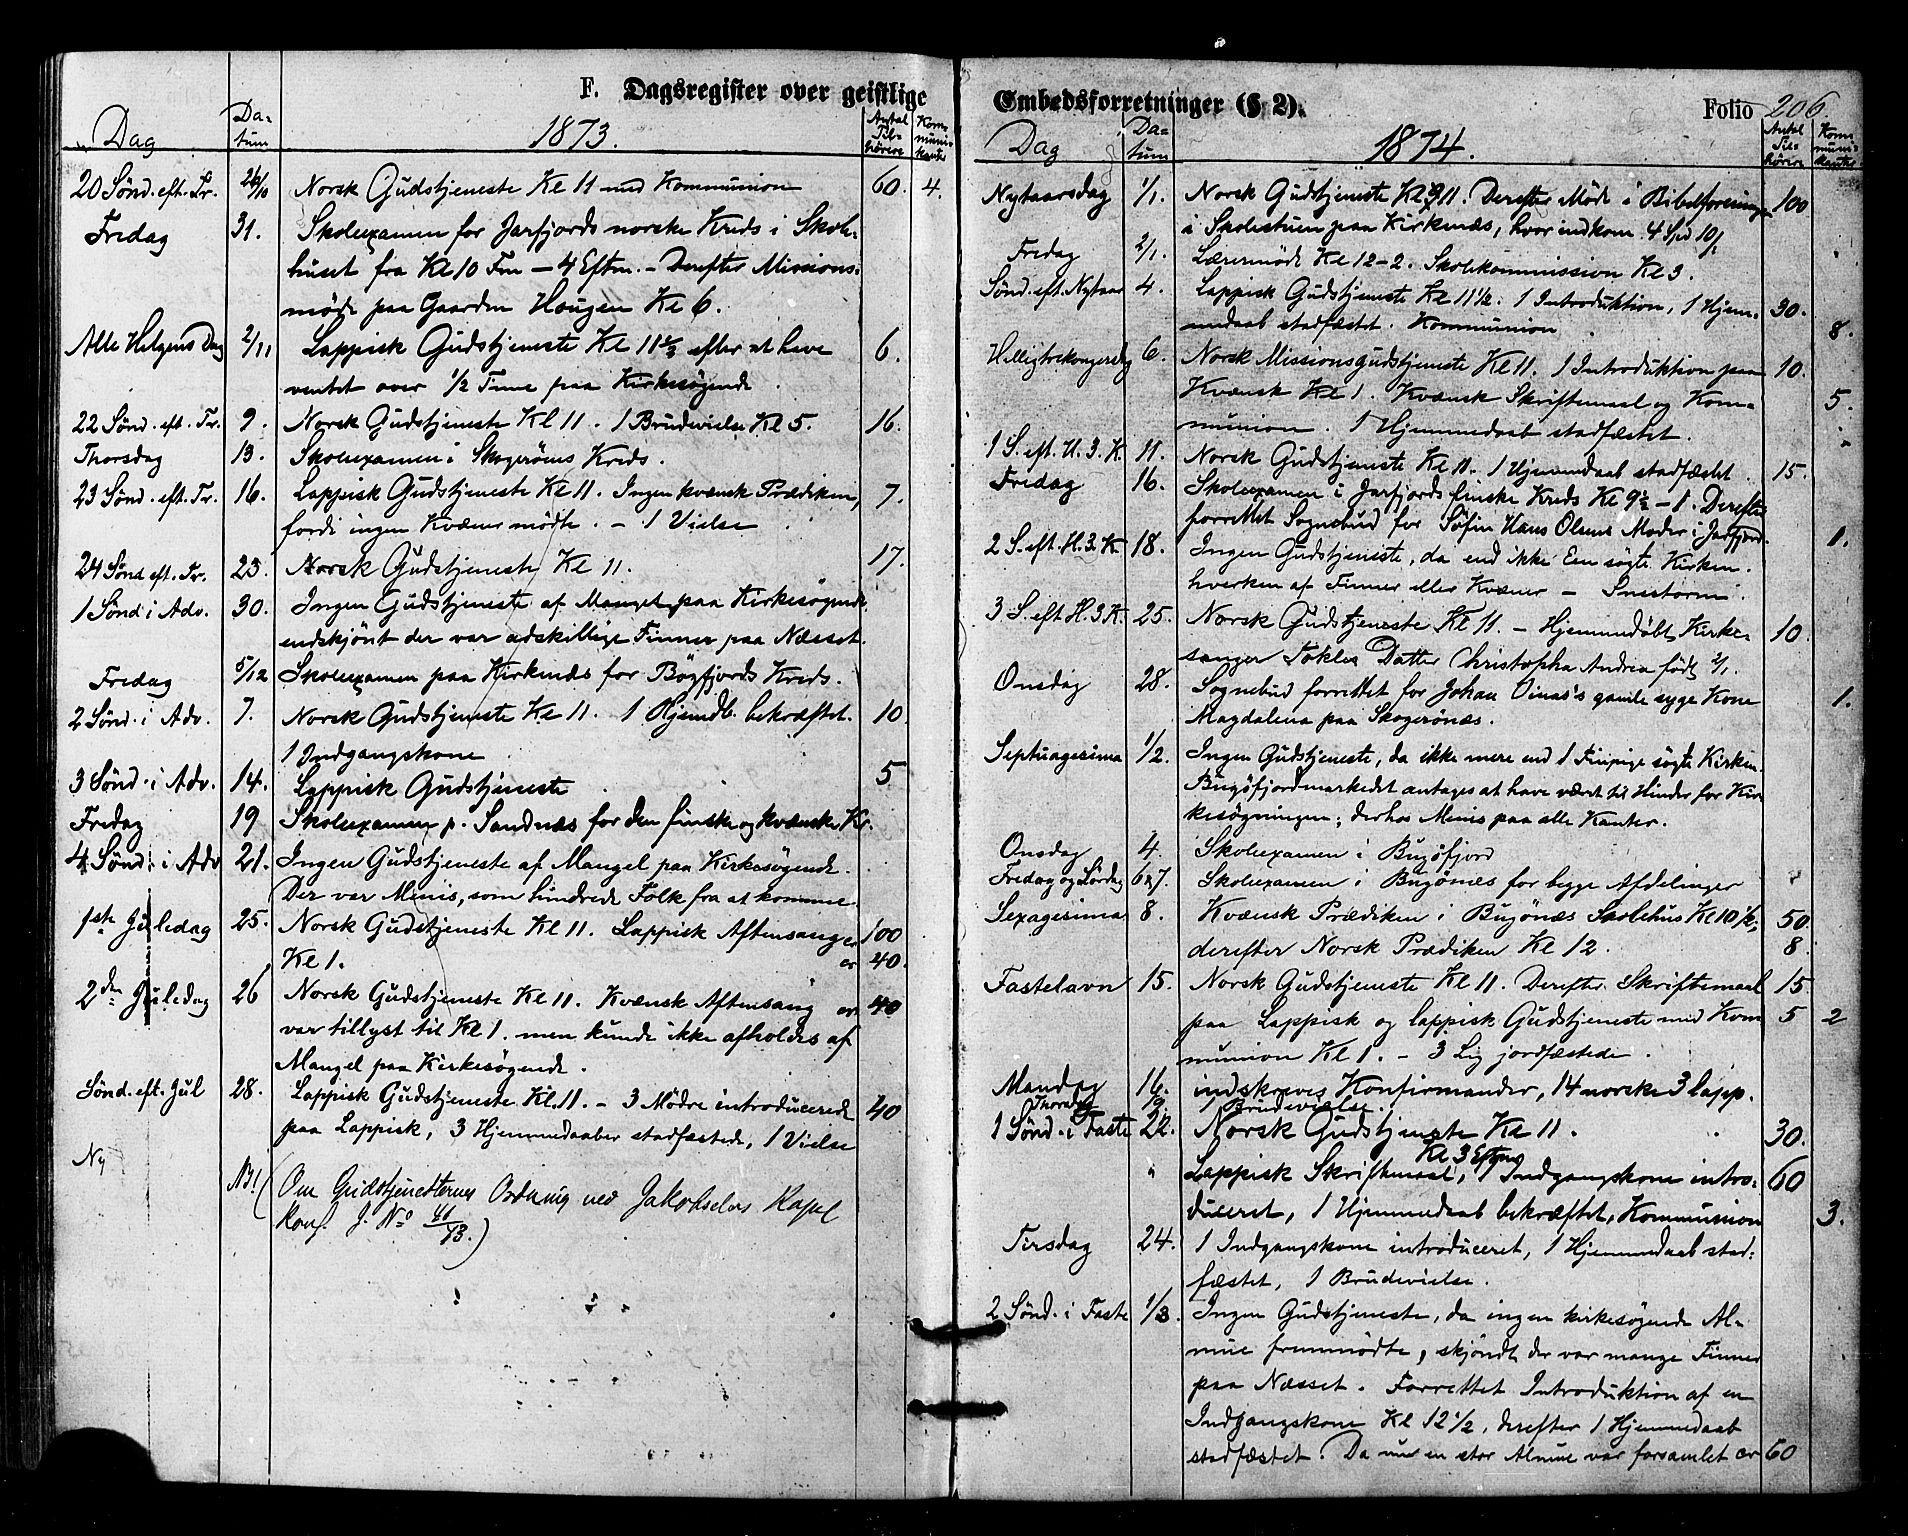 F. Dagsregister over geistlige
Dag Da-tum 1873. Antal Til-hörere Kom-muni-kanter
20 Sønd. eft. Tr. 26/10 Norsk Gudstjeneste Kl 11 med Kommunion 60. 4.
Fredag 31. Skoleexamen for Jarfjords norske Kreds i Skole-
huset fra Kl 10 Fm – 4 Eftm. – Derefter Missions-
møde paa Gaarden Haugen Kl 6.
Alle Helgens Dag 2/11 Lappisk Gudstjeneste Kl 11 1/2 efter at have 6.
ventet over 1/2 Time paa Kirkesøgende.
22 Sønd. eft. Tr. 9. Norsk Gudstjeneste Kl 11. 1 Brudevielse Kl 5. 16.
Thorsdag 13. Skoleexamen i Skogerøens Kreds.
23 Sønd. eft. Tr. 16. Lappisk Gudstjeneste Kl 11. Ingen kvænsk Prædiken, 7.
fordi ingen Kvæner mødte. – 1 Vielse
24 Sønd eft. Tr. 23. Norsk Gudstjeneste Kl 11. 17.
1 Sønd i Adv. 30. Ingen Gudstjeneste af Mangel paa Kirkesøgende,
endskjönt der var adskillige Finner paa Næsset.
Fredag 5/12 Skoleexamen paa Kirkenæs for Bøgfjords Kreds.
2 Sønd. i Adv. 7. Norsk Gudstjeneste Kl 11. 1 Hjemdb. bekræftet. 10
1 Indgangskone
3 Sønd. i Adv. 14. Lappisk Gudstjeneste 5
Fredag 19 Skoleexamen p. Sandnæs for den finske og kvænske Kr.
4 Sønd. i Adv 21. Ingen Gudstjeneste af Mangel paa Kirkesøgende.
Der var Menis, som hindrede Folk fra at komme.
1ste Juledag 25. Norsk Gudstjeneste Kl 11. Lappisk Aftensang cr 100
Kl 1. cr 40.
2den Juledag 26 Norsk Gudstjeneste Kl 11. Kvænsk Aftensang cr 40
var tillyst til Kl 1. men kunde ikke afholdes af
Mangel paa Kirkesøgende.
Sønd. eft. Jul 28. Lappisk Gudstjeneste Kl. 11. – 3 Mødre introducerede 40
paa Lappisk, 3 Hjemmedaaber stadfæstede, 1 Vielse
Ny
NB! (Om Gudstjenesternes Ordning ved Jakobselvs Kapel
konf. J. No 41/73.)
Embedsforretninger (§ 2). Folio 206
Dag Da-tum 1874. Antal Til-hörere Kom-muni-kanter
Nytaarsdag 1/1. Norsk Gudstjeneste Kl 11. Derefter Møde i Bibelforeningen 100
i Skolestuen paa Kirkenæs, hvor indkom 4 Spd 10 ſ.
Fredag 2/1. Lærermøde Kl 12–2. Skolekommission Kl 3.
Sønd. eft. Nytaar 4. Lappisk Gudstjeneste Kl 11 1/2. 1 Introduktion, 1 Hjem- 30.
medaab stadfæstet. Kommunion 8.
Helligtrekongersdag 6. Norsk Missionsgudstjeneste Kl 11. 1 Introduktion paa 10.
Kvænsk Kl 1. Kvænsk Skriftemaal og Kom- 5.
munion. 1 Hjemmedaab stadfæstet.
1 S. eft. H. 3. K. 11. Norsk Gudstjeneste Kl 11. 1 Hjemmedaab stadfæstet. 15.
Fredag 16. Skoleexamen i Jarfjords finske Kreds Kl 9 1/2 – 1. Derefter
forrettet Sognebud for Søfin Hans Olsens Moder i Jarfjord. 1.
2 S. eft. H. 3. K. 18. Ingen Gudstjeneste, da end ikke Een søgte Kirken.
hverken af Finner eller Kvæner – Snestorm.
3 S. eft H. 3. K. 25. Norsk Gudstjeneste Kl 11. – Hjemmedøbt Kirke- 10.
sanger Tokles Datter Christopha Andrea født 2/1.
Onsdag 28. Sognebud forrettet for Johan Oinas's gamle syge Kone 1.
Magdalena paa Skogerönæs.
Septuagesima 1/2. Ingen Gudstjeneste, da ikke mere end 1 Finpige søgte Kirken.
Bugøfjordmarkedet antages at have været til Hinder for Kir-
kesøgningen; derhos Menis paa alle Kanter.
Onsdag 4. Skoleexamen i Bugøfjord
Fredag og Lørdag 6 & 7. Skoleexamen i Bugönæs for begge Afdelinger
Sexagesima 8. Kvænsk Prædiken i Bugönæs Skolehus Kl 10 1/2, 50.
derefter Norsk Prædiken Kl 12. 8
Fastelavn 15. Norsk Gudstjeneste Kl 11. Derefter Skriftemaal 15
paa Lappisk og lappisk Gudstjeneste med Kom 5 2
munion Kl 1. – 3 Lig jordfæstede.
Mandag 16. indskreves Konfirmander, 14 norske 3 lapp.
Thorsdag 19. 1 Brudevielse.
1 Sønd. i Faste 22. Norsk Gudstjeneste Kl 11. 30.
" Lappisk Skriftemaal, Kl 3 Eftm 1 Indgangskone intro- 60
duceret, 1 Hjemmedaab bekræftet, Kommunion 3.
Tirsdag 24. 1 Indgangskone introduceret, 1 Hjemmedaab stad-
fæstet, 1 Brudevielse.
2 Sønd. i Faste 1/3. Ingen Gudstjeneste, da ingen kirkesøgende Al-
mue fremmødte, skjöndt der var mange Finner
paa Næsset. Forrettet Introduktion af en
Indgangskone Kl 12 1/2, derefter 1 Hjemmedaab
stadfæstet. Da nu en stor Almue var forsamlet cr 60